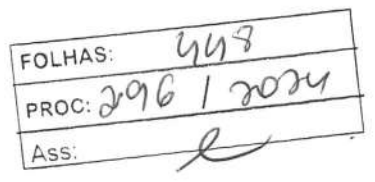 FOLHAS: 448
PROC: 296 / 2024
Ass: